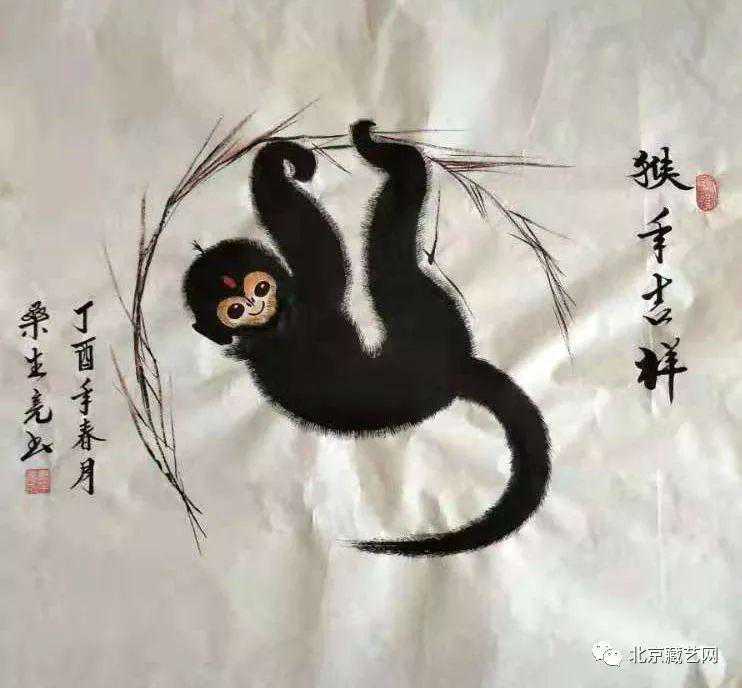 猴年吉祥
丁酉年春月
桑生亮书
北京藏艺网